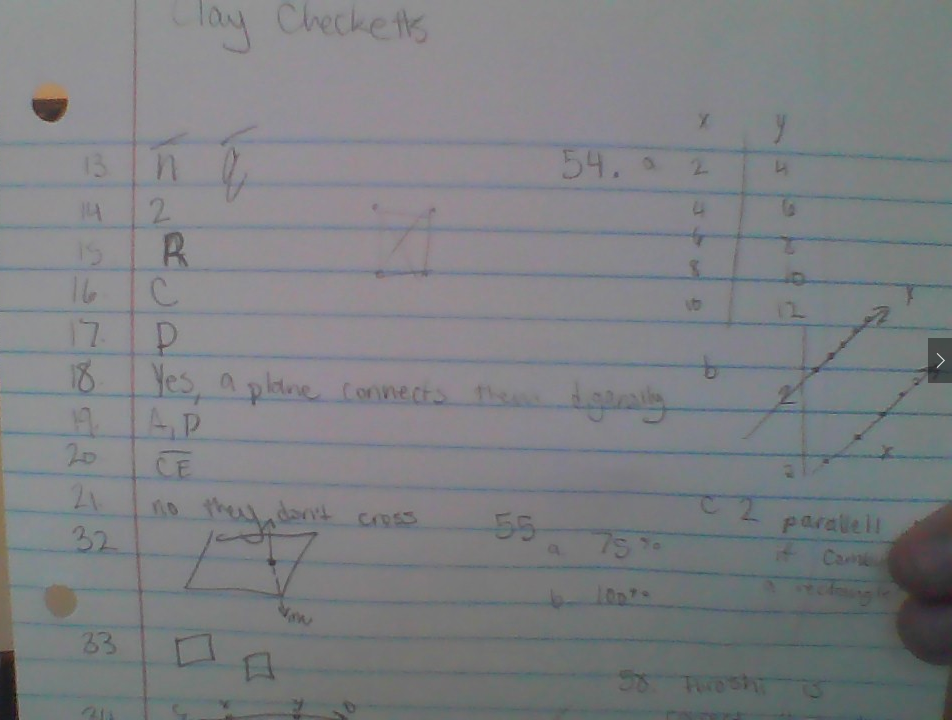 Clay Checketts
13 n q
14 2
15 R
16 C
17. D
18. Yes, a plane connects them diganally
19. A, D
20 CE
21. no they don't cross
32
m
33
34
54. a x y
2 4
4 6
6 8
8 10
10 12
b
2
x
C 2 parallell
it
a rectangle
55
a 75%
b 100%
58. Hiroshi is
correct